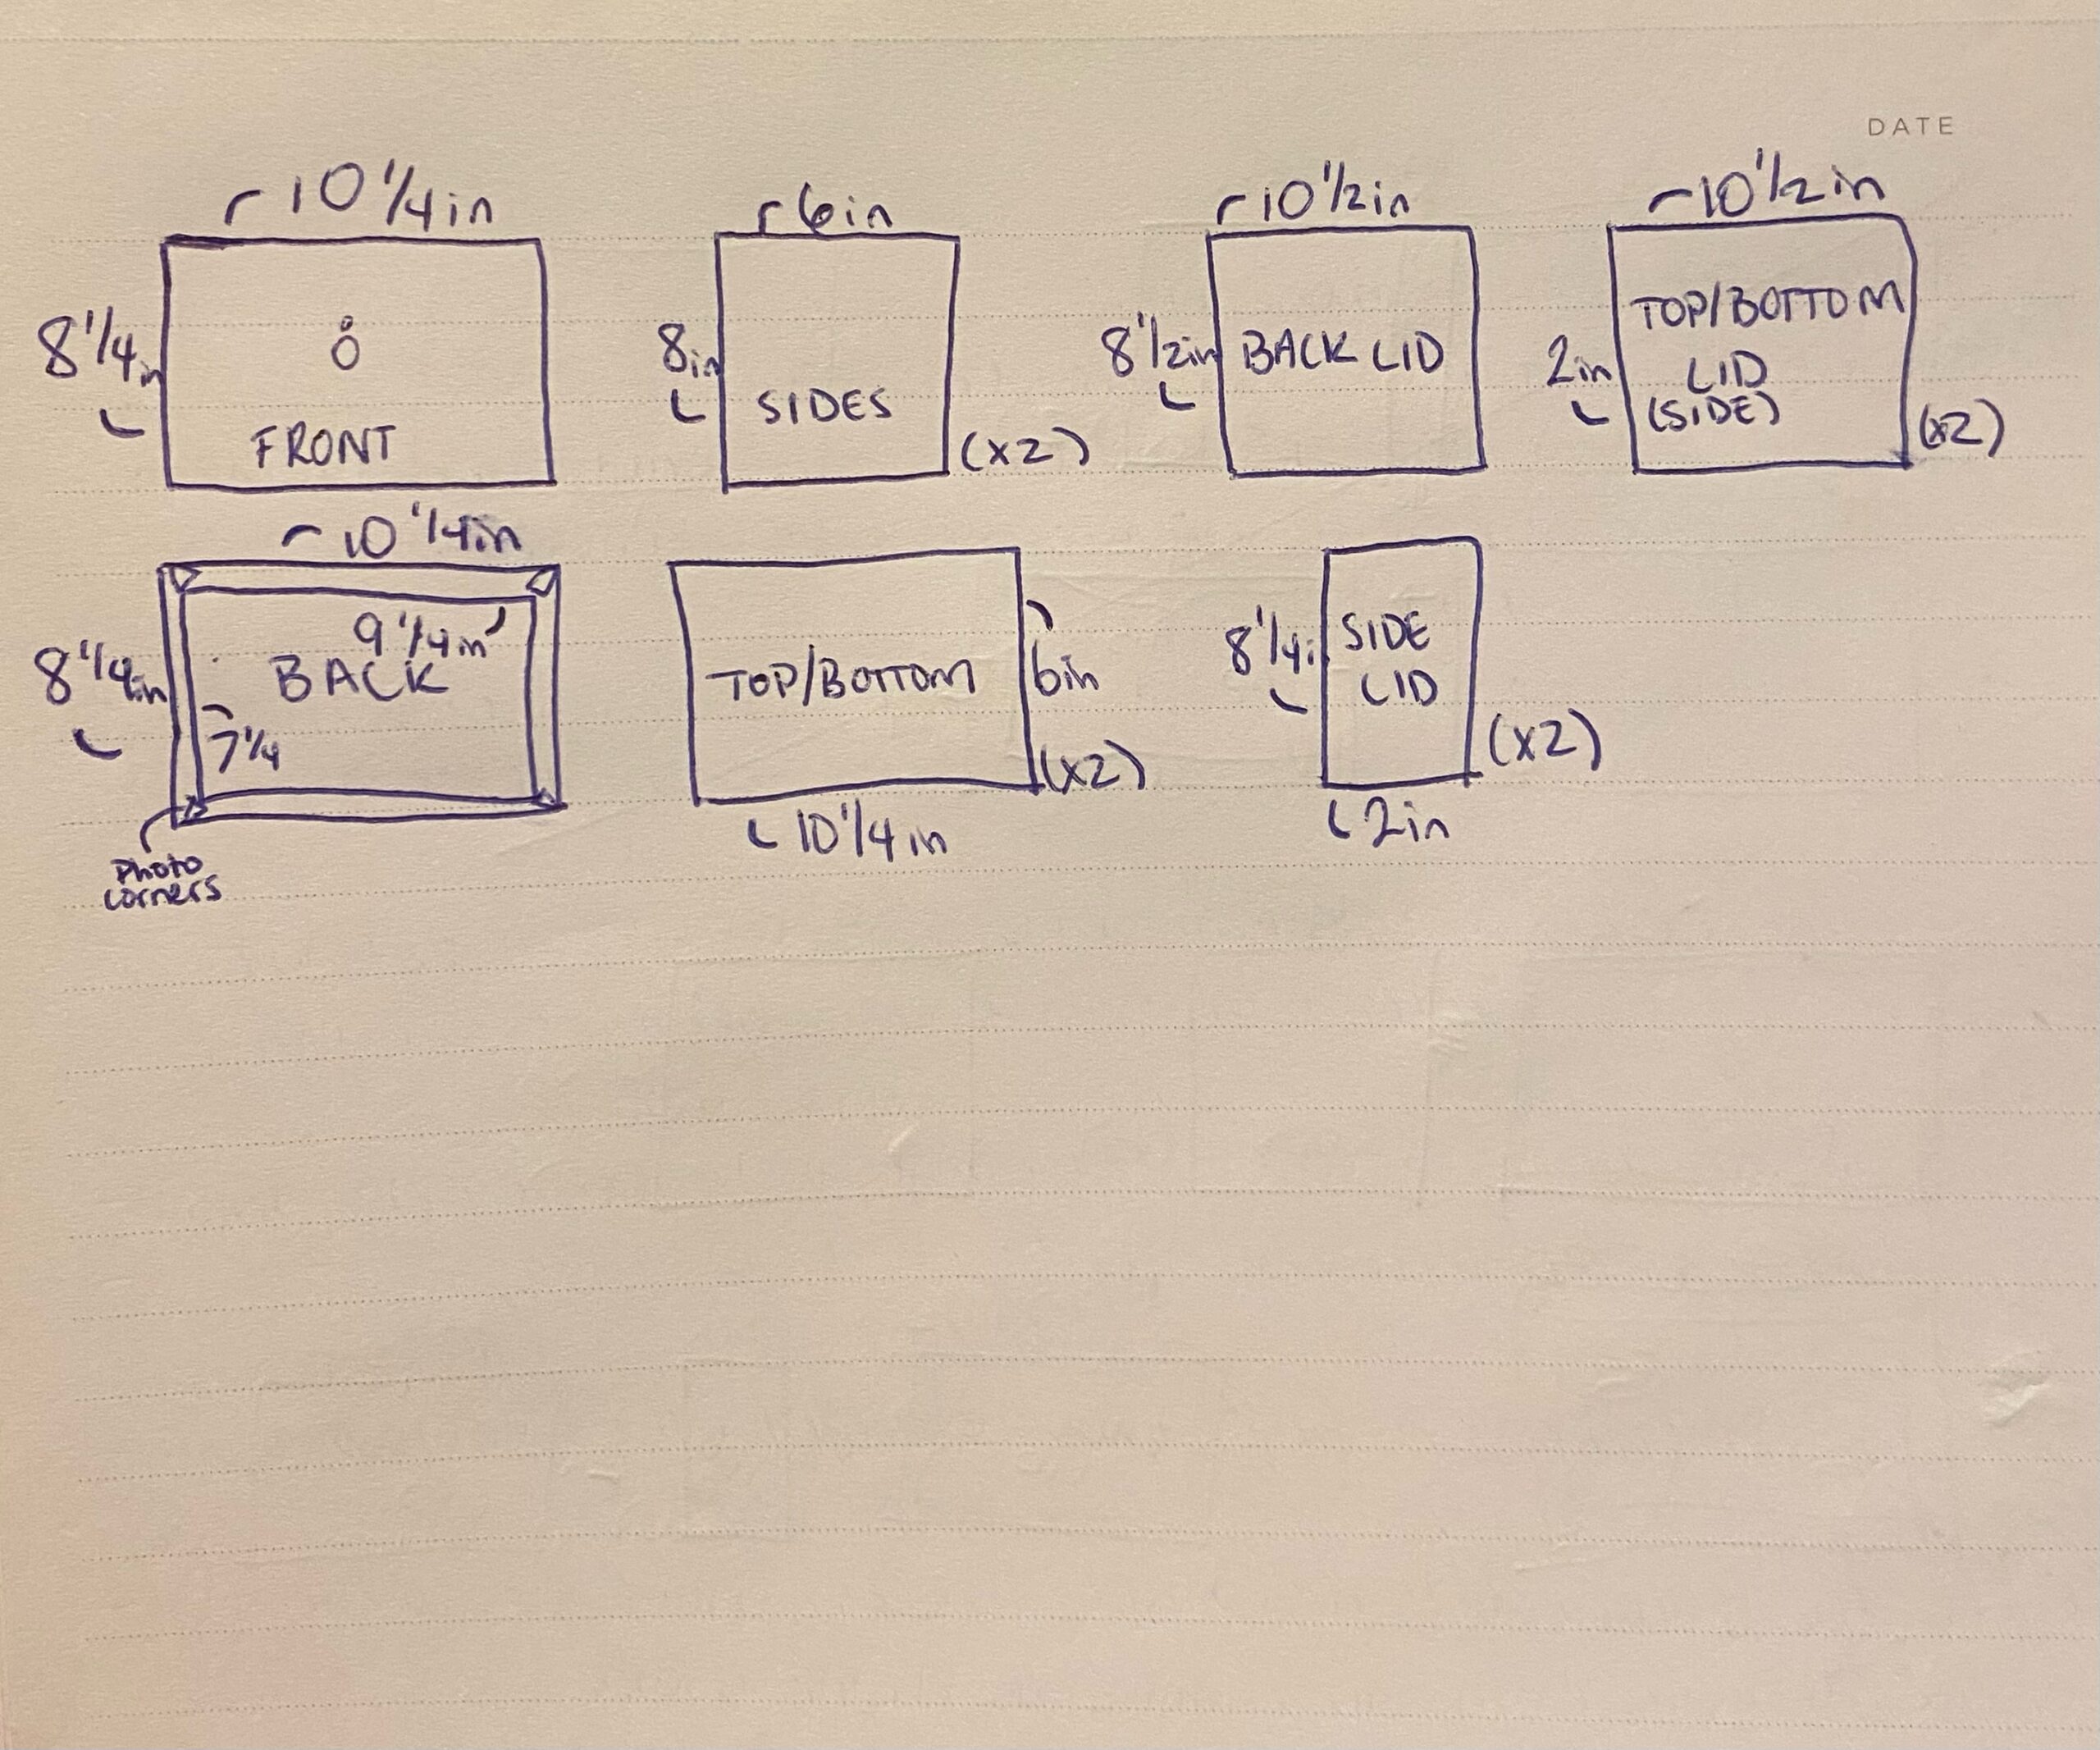 DATE
10 1/4 in
8 1/4 in
FRONT
6in
8in
SIDES
(x2)
10 1/2in
8 1/2in
BACK LID
10 1/2 in
2in
TOP/BOTTOM
LID
(SIDE)
(x2)
10 1/4in
8 1/4in
9 1/4in
BACK
7 1/4
Photo
corners
TOP/BOTTOM
6in
(x2)
10 1/4 in
8 1/4in
SIDE
LID
(x2)
2in